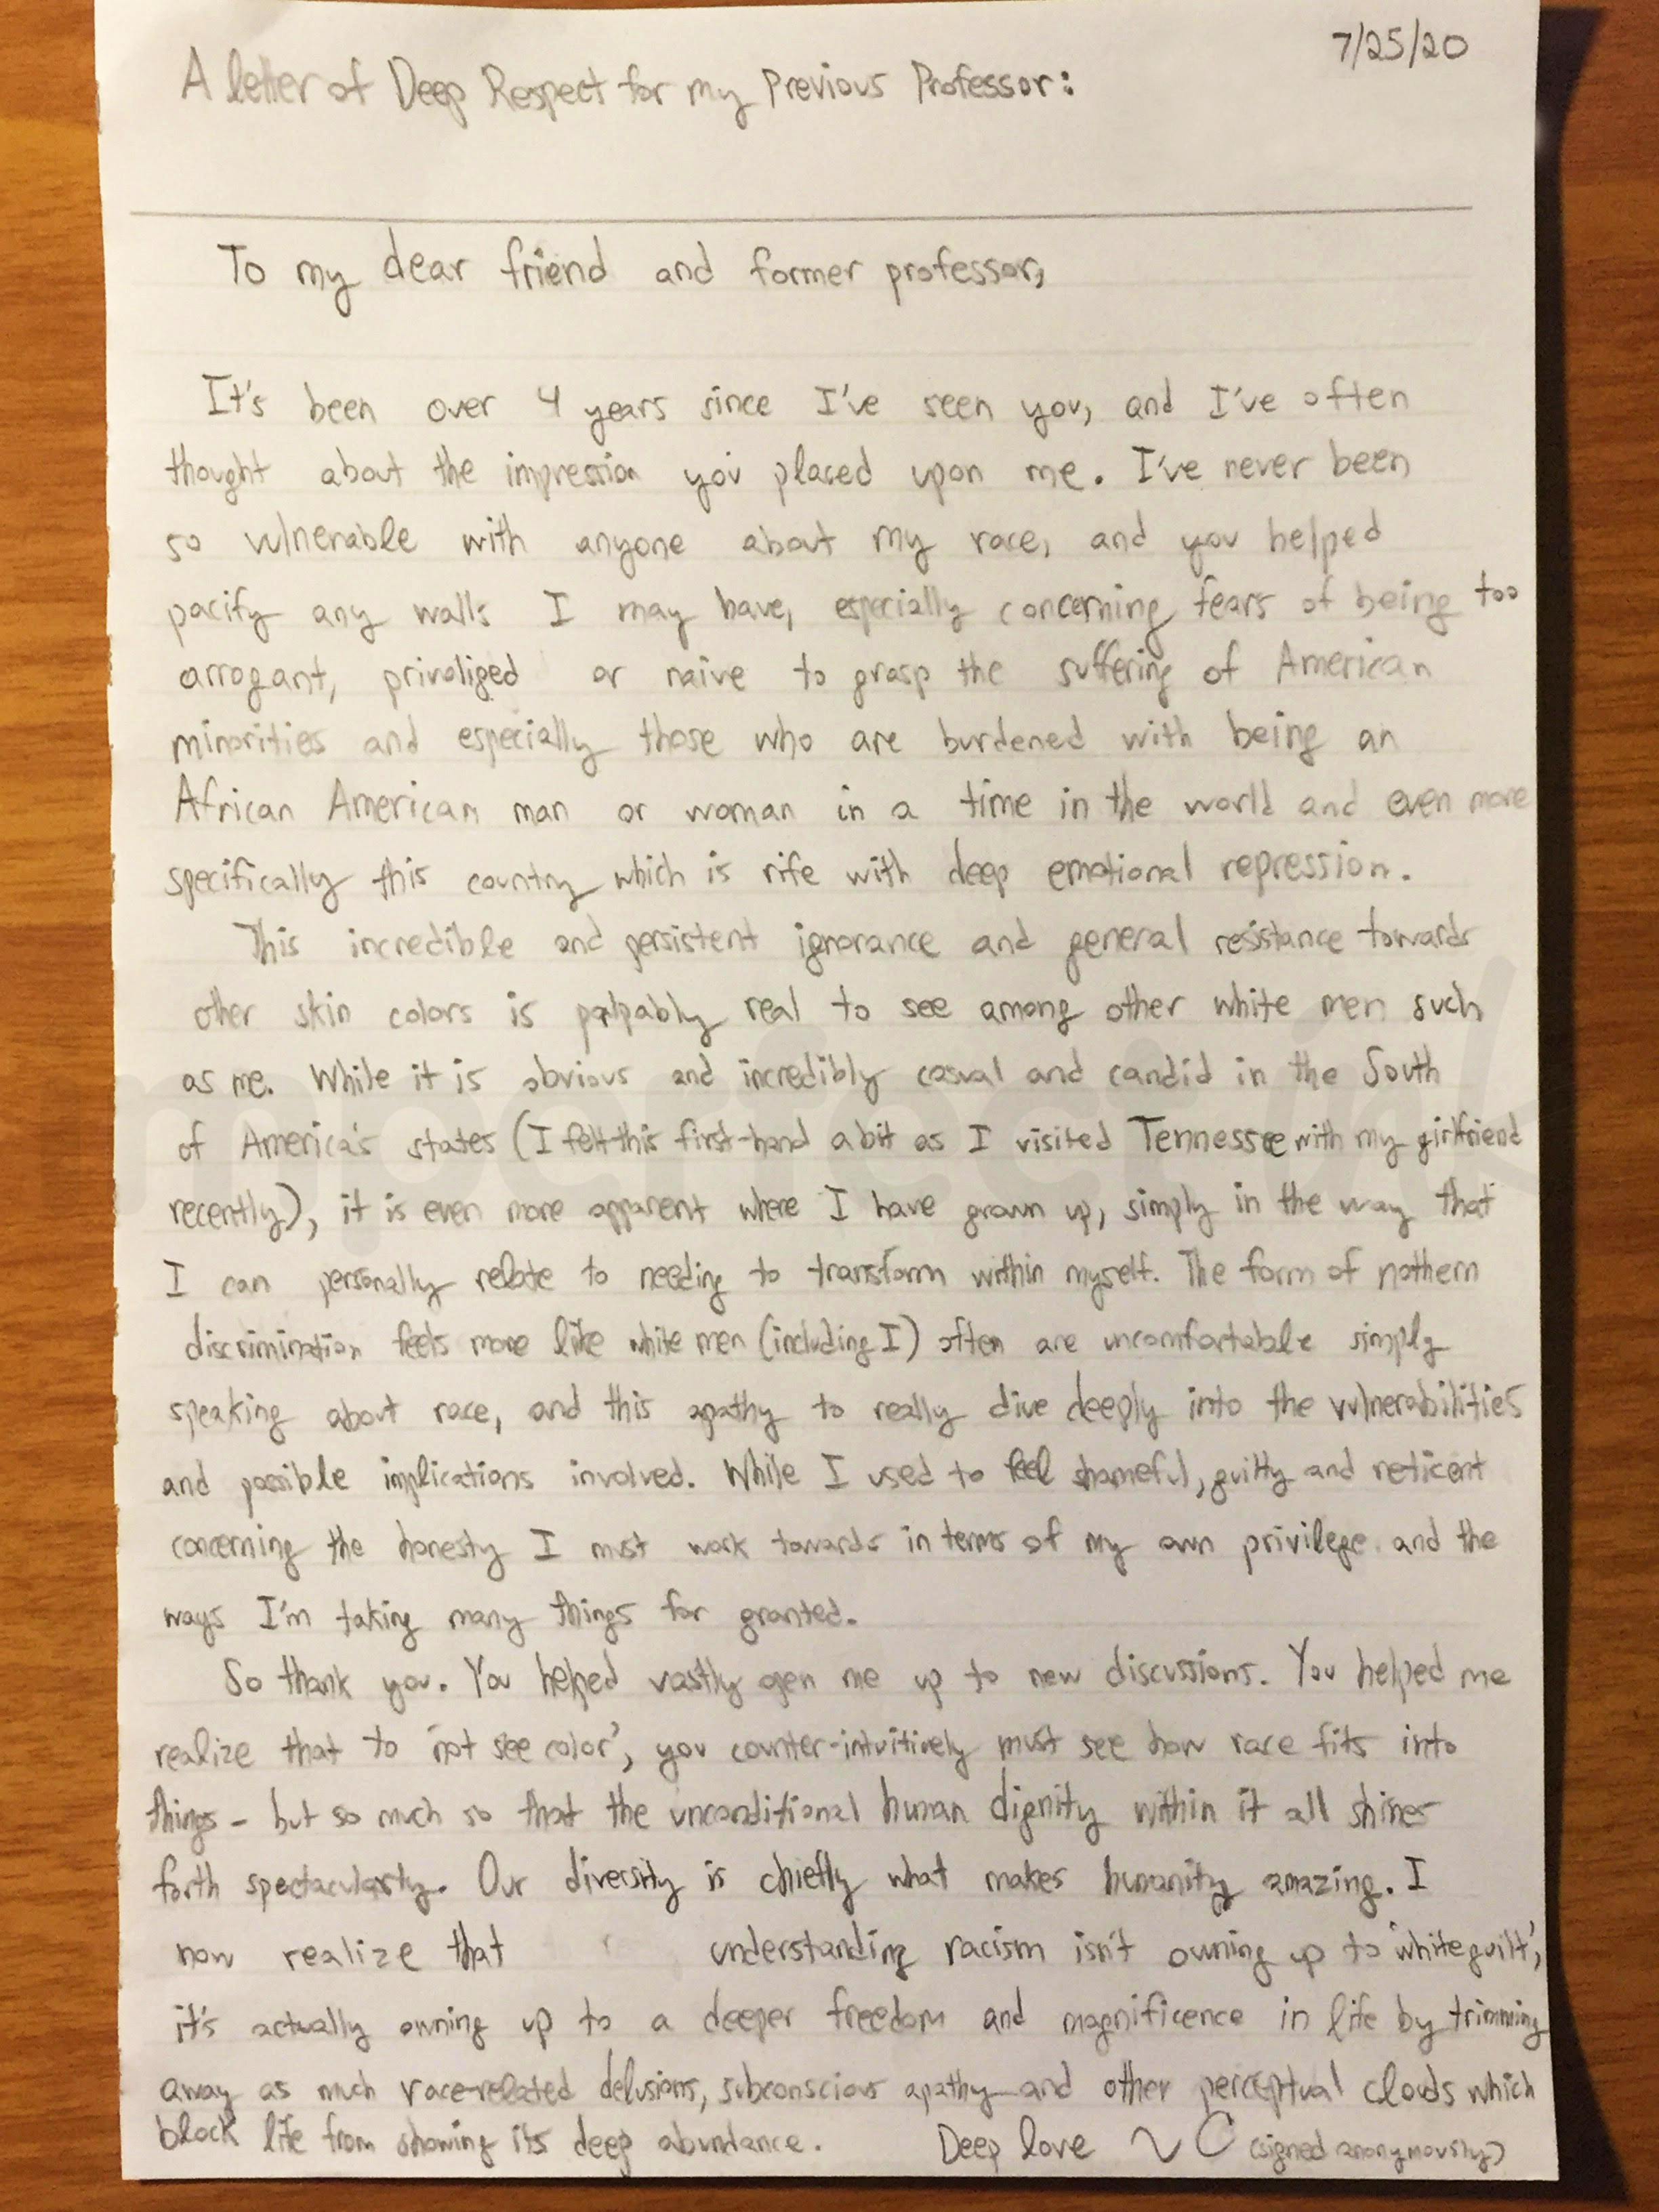 7/25/20
A letter of Deep Respect for my Previous Professor:
To my dear friend and former professor,
It's been over 4 years since I've seen you, and I've often
thought about the impression you placed upon me. I've never been
so vulnerable with anyone about my race, and you helped
pacify any walls I may have, especially concerning fears of being too
arrogant, privaliged or naive to grasp the suffering of American
minorities and especially those who are burdened with being an
African American man or woman in a time in the world and even more
specifically this country which is rife with deep emotional repression.
This incredible and persistent ignorance and general resistance towards
other skin colors is palpably real to see among other white men such
as me. While it is obvious and incredibly casual and candid in the South
of America's states (I felt this first-hand a bit as I visited Tennessee with my girlfriend
recently), it is even more apparent where I have grown up, simply in the way that
I can personally relate to needing to transform within myself. The form of nothern
discrimination feels more like white men (including I) often are uncomfortable simply
speaking about race, and this apathy to really dive deeply into the vulnerabilities
and possible implications involved. While I used to feel shameful, guilty and reticent
concerning the honesty I must work towards in terms of my own privilege and the
ways I'm taking many things for granted.
So thank you. You helped vastly open me up to new discussions. You helped me
realize that to 'not see color', you counter-intuitively must see how race fits into
things - but so much so that the unconditional human dignity within it all shines
forth spectacularly. Our diversity is chiefly what makes humanity amazing. I
now realize that understanding racism isn't owning up to 'white guilt',
it's actually owning up to a deeper freedom and magnificence in life by trimming
away as much race-related delusions, subconscious apathy and other perceptual clouds which
block life from showing its deep abundance. Deep love ~ C (signed anonymously)
imperfect ink